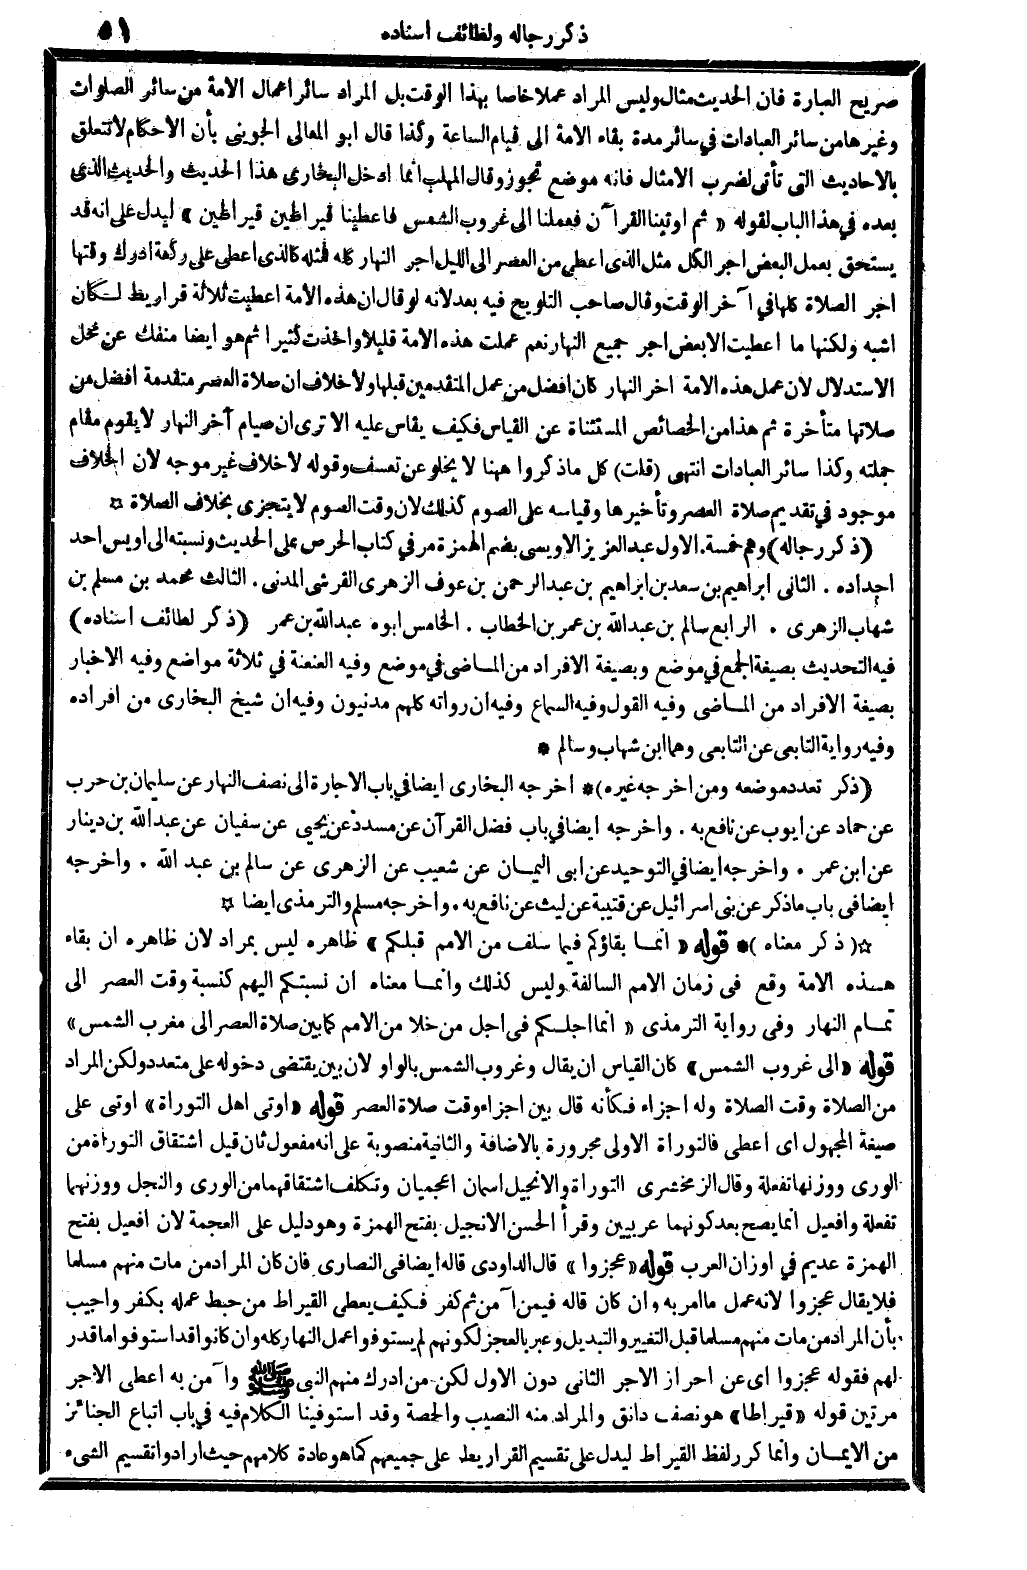 ذكر رجاله ولطائف اسناده ٥١
صريح العبارة فان الحديث مثال وليس المراد عملا خاصا بهذا الوقت بل المراد سائر اعمال الامة من سائر الصلوات
وغيرها من سائر العبادات في سائر مدة بقاء الامة الى قيام الساعة وكذا قال ابو المعالى الجوينى بأن الاحكام لا تتعلق
بالاحاديث التى تأتى لضرب الامثال فانه موضع تجوز وقال المهلب انما ادخل البخارى هذا الحديث والحديث الذى
بعده في هذا الباب لقوله « ثم اوتينا القرآن فعملنا الى غروب الشمس فاعطينا قيراطين قيراطين » ليدل على انه قد
يستحق بعمل البعض اجر الكل مثل الذى اعطى من العصر الى الليل اجر النهار كله فمثله كالذى اعطى على ركعة ادرك وقتها
اجر الصلاة كلها في آخر الوقت وقال صاحب التلويح فيه بعد لانه لو قال ان هذه الامة اعطيت ثلاثة قراريط لكان
اشبه ولكنها ما اعطيت الا بعض اجر جميع النهار نعم عملت هذه الامة قليلا واخذت كثيرا ثم هو ايضا منفك عن محل
الاستدلال لان عمل هذه الامة اخر النهار كان افضل من عمل المتقدمين قبلها ولا خلاف ان صلاة العصر متقدمة افضل من
صلاتها متأخرة ثم هذا من الخصائص المستثناة عن القياس فكيف يقاس عليه الا ترى ان صيام آخر النهار لا يقوم مقام
جملته وكذا سائر العبادات انتهى (قلت) كل ما ذكروا ههنا لا يخلو عن تعسف وقوله لا خلاف غير موجه لان الخلاف
موجود في تقديم صلاة العصر وتأخيرها وقياسه على الصوم كذلك لان وقت الصوم لا يتجزى بخلاف الصلاة ☆
(ذكر رجاله) وهم خمسة. الاول عبد العزيز الاويسى بضم الهمزة مر في كتاب الحرص على الحديث ونسبته الى اويس احد
اجداده . الثانى ابراهيم بن سعد بن ابراهيم بن عبد الرحمن بن عوف الزهرى القرشى المدنى . الثالث محمد بن مسلم بن
شهاب الزهرى . الرابع سالم بن عبد الله بن عمر بن الخطاب . الخامس ابوه عبد الله بن عمر (ذكر لطائف اسناده)
فيه التحديث بصيغة الجمع في موضع وبصيغة الافراد من الماضى في موضع وفيه العنعنة في ثلاثة مواضع وفيه الاخبار
بصيغة الافراد من الماضى وفيه القول وفيه السماع وفيه ان رواته كلهم مدنيون وفيه ان شيخ البخارى من افراده
وفيه رواية التابعى عن التابعى وهما ابن شهاب وسالم *
(ذكر تعدد موضعه ومن اخرجه غيره)* اخرجه البخارى ايضا في باب الاجارة الى نصف النهار عن سليمان بن حرب
عن حماد عن ايوب عن نافع به . واخرجه ايضا في باب فضل القرآن عن مسدد عن يحيى عن سفيان عن عبد الله بن دينار
عن ابن عمر . واخرجه ايضا في التوحيد عن ابى اليمان عن شعيب عن الزهرى عن سالم بن عبد الله . واخرجه
ايضا فى باب ما ذكر عن بنى اسرائيل عن قتيبة عن ليث عن نافع به . واخرجه مسلم والترمذى ايضا ☆
☆( ذكر معناه )* قوله « انما بقاؤكم فيما سلف من الامم قبلكم » ظاهره ليس بمراد لان ظاهره ان بقاء
هذه الامة وقع فى زمان الامم السالفة وليس كذلك وانما معناه ان نسبتكم اليهم كنسبة وقت العصر الى
تمام النهار وفى رواية الترمذى « انما اجلكم فى اجل من خلا من الامم كما بين صلاة العصر الى مغرب الشمس »
قوله «الى غروب الشمس» كان القياس ان يقال وغروب الشمس بالواو لان بين يقتضى دخوله على متعدد ولكن المراد
من الصلاة وقت الصلاة وله اجزاء فكأنه قال بين اجزاء وقت صلاة العصر قوله «اوتى اهل التوراة» اوتى على
صيغة المجهول اى اعطى فالتوراة الاولى مجرورة بالاضافة والثانية منصوبة على انه مفعول ثان قيل اشتقاق التوراة من
الورى ووزنها تفعلة وقال الزمخشرى التوراة والانجيل اسمان اعجميان وتكلف اشتقاقهما من الورى والنجل ووزنهما
تفعلة وافعيل انما يصح بعد كونهما عربيين وقرأ الحسن الانجيل بفتح الهمزة وهو دليل على العجمة لان افعيل بفتح
الهمزة عديم في اوزان العرب قوله «عجزوا » قال الداودى قاله ايضا فى النصارى فان كان المراد من مات منهم مسلما
فلا يقال عجزوا لانه عمل ما امر به وان كان قاله فيمن آمن ثم كفر فكيف يعطى القيراط من حبط عمله بكفر واجيب
بأن المراد من مات منهم مسلما قبل التغيير والتبديل وعبر بالعجز لكونهم لم يستوفوا عمل النهار كله وان كانوا قد استوفوا ما قدر
لهم فقوله عجزوا اى عن احراز الاجر الثانى دون الاول لكن من ادرك منهم النبى ﷺ وآمن به اعطى الاجر
مرتين قوله «قيراطا» هو نصف دانق والمراد منه النصيب والحصة وقد استوفينا الكلام فيه في باب اتباع الجنائز
من الايمان وانما كرر لفظ القيراط ليدل على تقسيم القراريط على جميعهم كما هو عادة كلامهم حيث ارادوا تقسيم الشىء